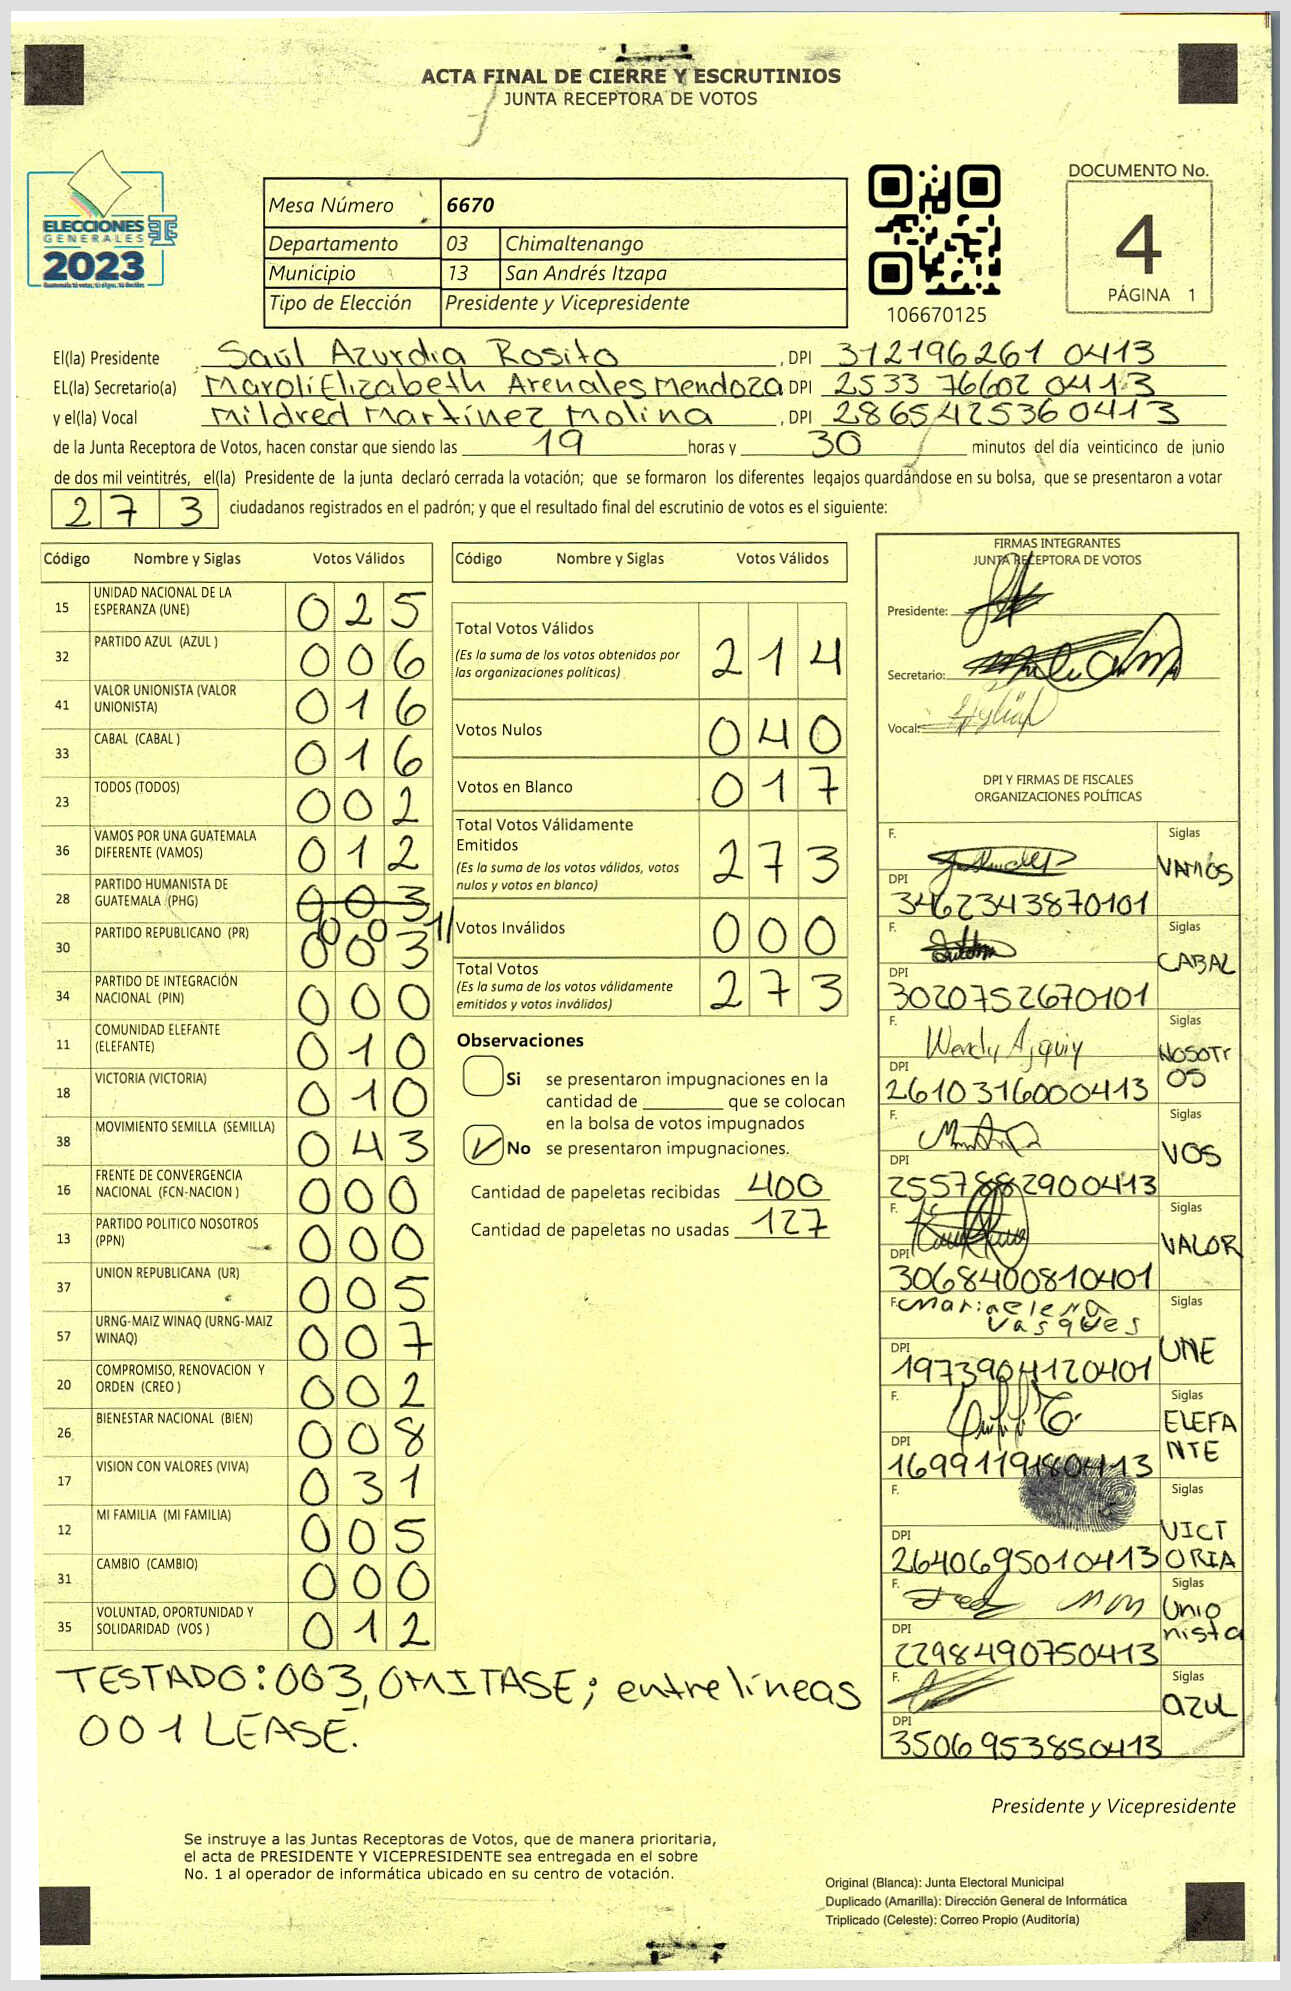 ACTA FINAL DE CIERRE Y ESCRUTINIOS
JUNTA RECEPTORA DE VOTOS
ELECCIONES
GENERALES
2023
Mesa Número 6670
Departamento 03 Chimaltenango
Municipio 13 San Andrés Itzapa
Tipo de Elección Presidente y Vicepresidente
106670125
DOCUMENTO No.
4
PÁGINA 1
El(la) Presidente Saúl Azurdia Rosito, DPI 312196261 0413
EL(la) Secretario(a) Marolí Elizabeth Arenales Mendoza DPI 2533 76602 0413
y el(la) Vocal Mildred Martínez Molina, DPI 2865425360413
de la Junta Receptora de Votos, hacen constar que siendo las 19 horas y 30 minutos del día veinticinco de junio
de dos mil veintitrés, el(la) Presidente de la junta declaró cerrada la votación; que se formaron los diferentes legajos guardándose en su bolsa, que se presentaron a votar
273 ciudadanos registrados en el padrón; y que el resultado final del escrutinio de votos es el siguiente:
Código Nombre y Siglas Votos Válidos
15 UNIDAD NACIONAL DE LA ESPERANZA (UNE) 025
32 PARTIDO AZUL (AZUL ) 006
41 VALOR UNIONISTA (VALOR UNIONISTA) 016
33 CABAL (CABAL ) 016
23 TODOS (TODOS) 002
36 VAMOS POR UNA GUATEMALA DIFERENTE (VAMOS) 012
28 PARTIDO HUMANISTA DE GUATEMALA (PHG) 003
001//
30 PARTIDO REPUBLICANO (PR) 003
34 PARTIDO DE INTEGRACIÓN NACIONAL (PIN) 000
11 COMUNIDAD ELEFANTE (ELEFANTE) 010
18 VICTORIA (VICTORIA) 010
38 MOVIMIENTO SEMILLA (SEMILLA) 043
16 FRENTE DE CONVERGENCIA NACIONAL (FCN-NACION ) 000
13 PARTIDO POLITICO NOSOTROS (PPN) 000
37 UNION REPUBLICANA (UR) 005
57 URNG-MAIZ WINAQ (URNG-MAIZ WINAQ) 007
20 COMPROMISO, RENOVACION Y ORDEN (CREO ) 002
26 BIENESTAR NACIONAL (BIEN) 008
17 VISION CON VALORES (VIVA) 031
12 MI FAMILIA (MI FAMILIA) 005
31 CAMBIO (CAMBIO) 000
35 VOLUNTAD, OPORTUNIDAD Y SOLIDARIDAD (VOS ) 012
TESTADO: 003, OMITASE; entre líneas
001 LEASE.
Código Nombre y Siglas Votos Válidos
Total Votos Válidos 214
(Es la suma de los votos obtenidos por
las organizaciones políticas)
Votos Nulos 040
Votos en Blanco 017
Total Votos Válidamente
Emitidos 273
(Es la suma de los votos válidos, votos
nulos y votos en blanco)
Votos Inválidos 000
Total Votos 273
(Es la suma de los votos válidamente
emitidos y votos inválidos)
Observaciones
Si se presentaron impugnaciones en la
cantidad de ________ que se colocan
en la bolsa de votos impugnados
No se presentaron impugnaciones.
Cantidad de papeletas recibidas 400
Cantidad de papeletas no usadas 127
FIRMAS INTEGRANTES
JUNTA RECEPTORA DE VOTOS
Presidente:
Secretario:
Vocal:
DPI Y FIRMAS DE FISCALES
ORGANIZACIONES POLÍTICAS
F. Siglas
VAMOS
DPI
3462343870101
F. Siglas
CABAL
DPI
3020752670101
F. Wendy Ajquiy Siglas
NOSOTROS
DPI
2610316000413
F. Siglas
VOS
DPI
2557882900413
F. Siglas
VALOR
DPI
3068400810401
F. Mariaelena Vasques Siglas
UNE
DPI
1973904120401
F. Siglas
ELEFANTE
DPI
1699119180413
F. Siglas
VICTORIA
DPI
2640695010413
F. Siglas
Unionista
DPI
2298490750413
F. Siglas
AZUL
DPI
3506953850413
Presidente y Vicepresidente
Se instruye a las Juntas Receptoras de Votos, que de manera prioritaria,
el acta de PRESIDENTE Y VICEPRESIDENTE sea entregada en el sobre
No. 1 al operador de informática ubicado en su centro de votación.
Original (Blanca): Junta Electoral Municipal
Duplicado (Amarilla): Dirección General de Informática
Triplicado (Celeste): Correo Propio (Auditoría)